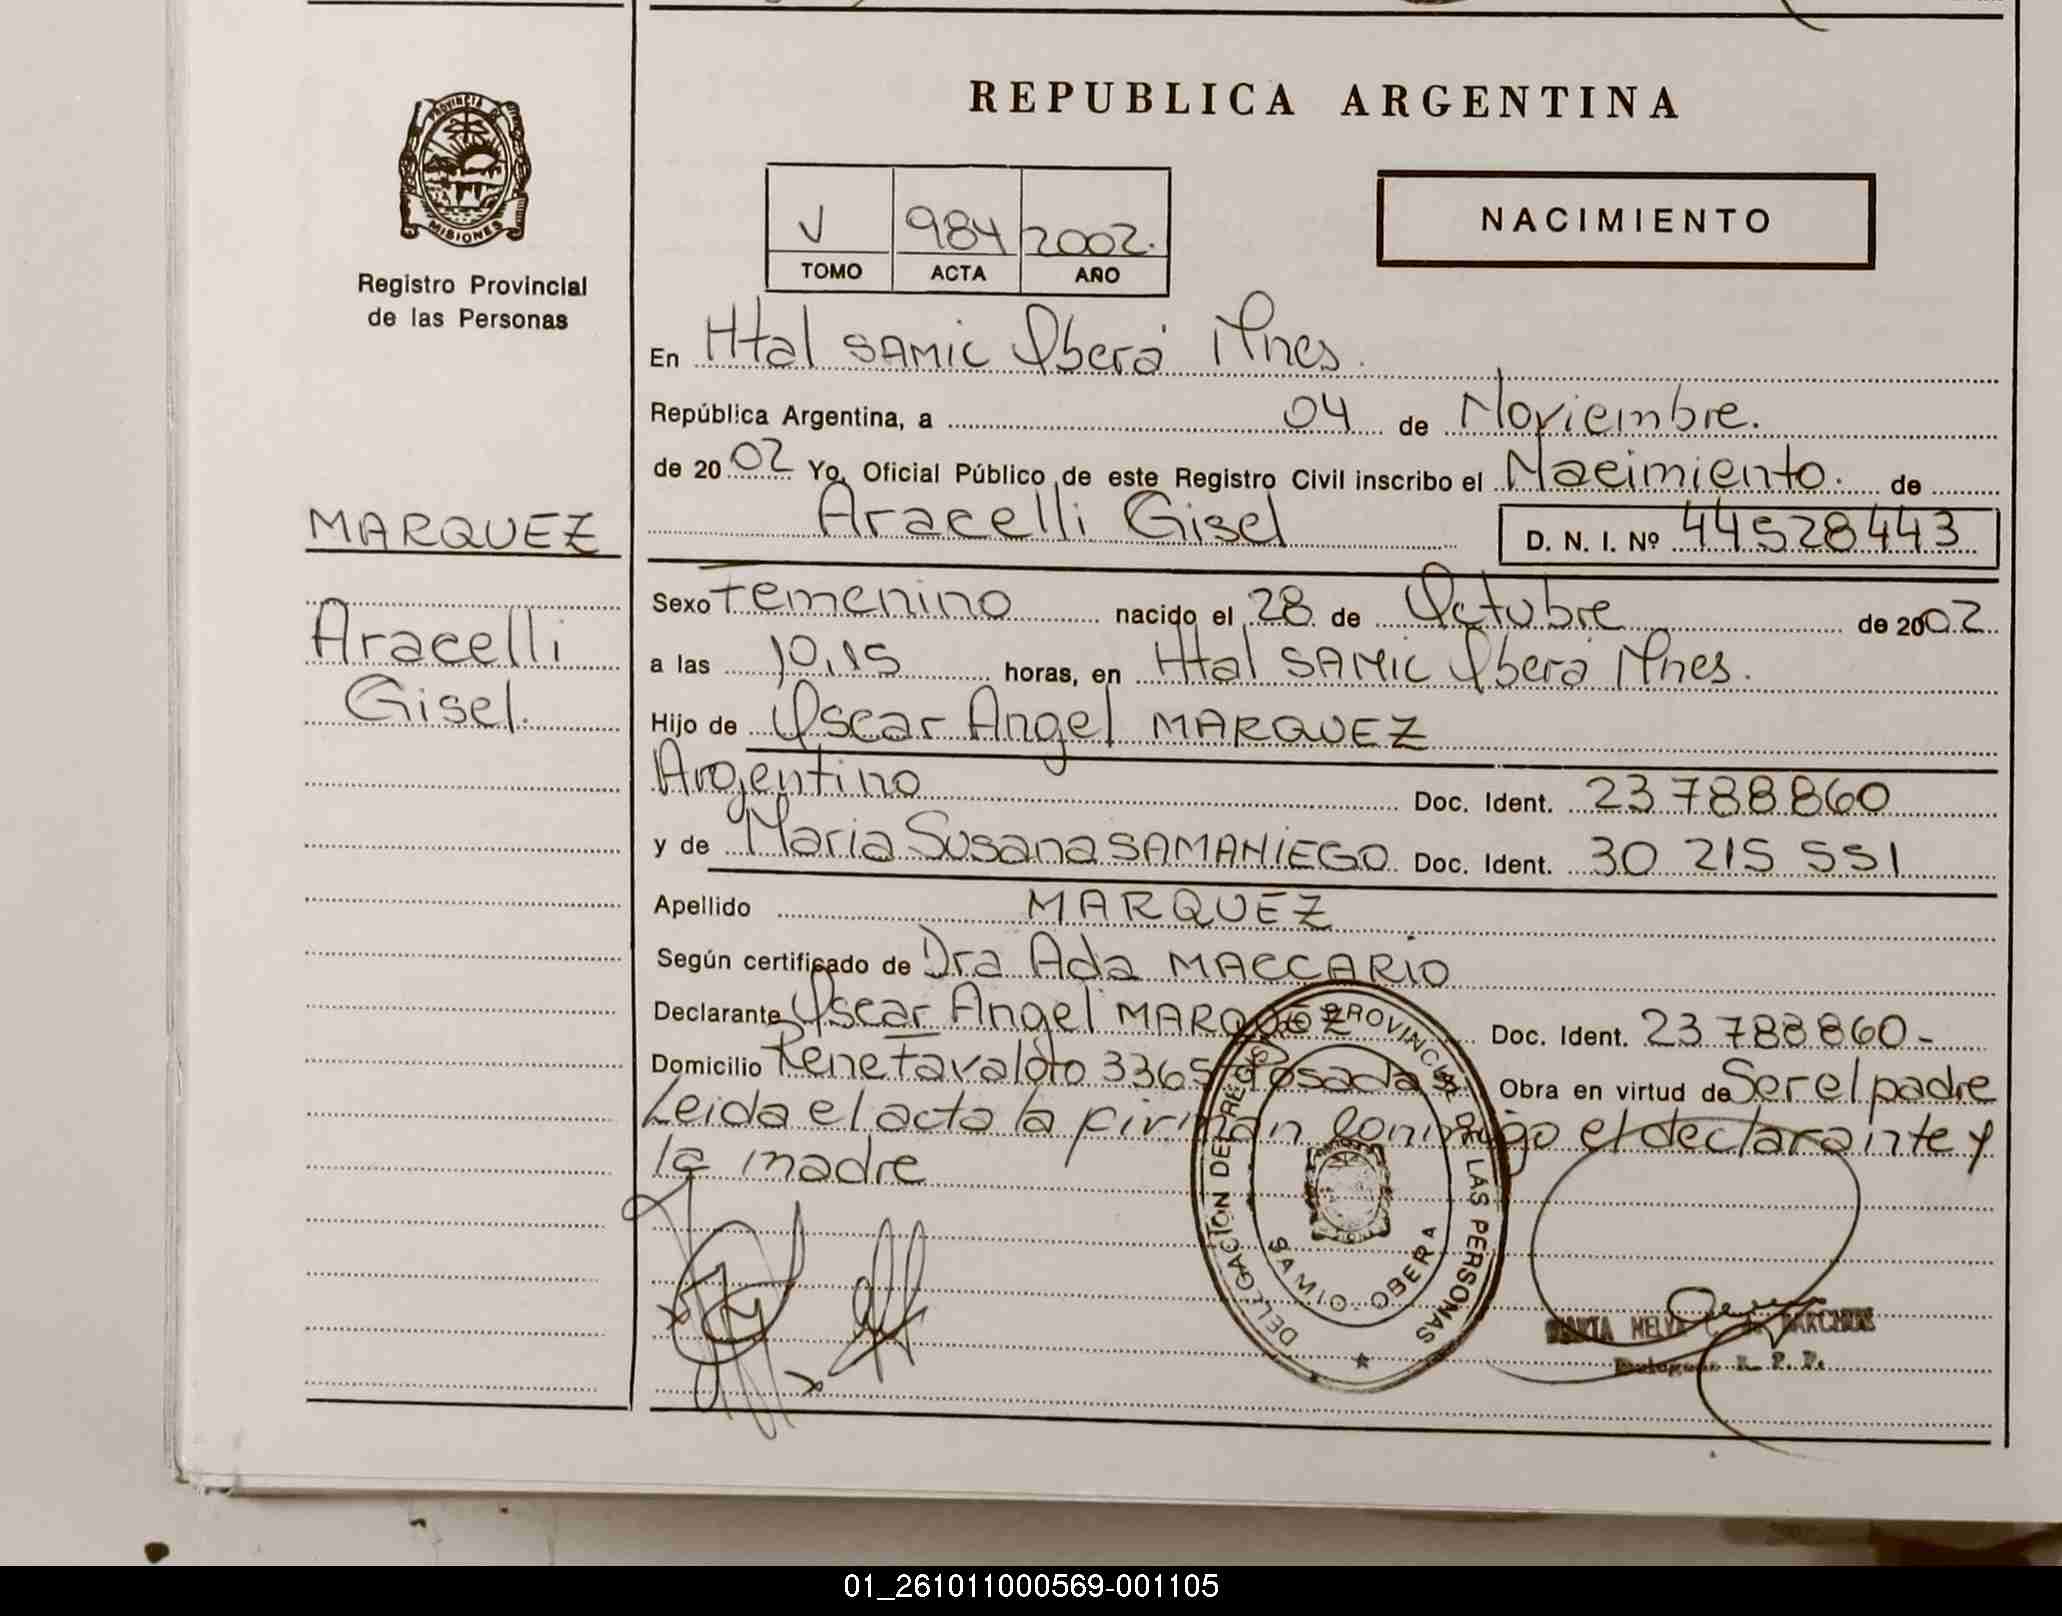 REPUBLICA ARGENTINA
PROVINCIA DE
MISIONES
Registro Provincial
de las Personas
V 984 2002.
TOMO ACTA AÑO
NACIMIENTO
En Htal SAMIC Oberá Mnes.
República Argentina, a 04 de Noviembre.
de 2002 Yo, Oficial Público de este Registro Civil inscribo el Nacimiento. de
Aracelli Gisel D. N. I. Nº 44528443
MARQUEZ
Aracelli
Gisel.
Sexo Femenino nacido el 28 de Octubre de 2002
a las 10,15 horas, en Htal SAMIC Oberá Mnes.
Hijo de Oscar Angel MARQUEZ
Argentino Doc. Ident. 23 788 860
y de Maria Susana SAMANIEGO Doc. Ident. 30 215 551
Apellido MARQUEZ
Según certificado de Dra Ada MACCARIO
Declarante Oscar Angel MARQUEZ Doc. Ident. 23 788860-
Domicilio Rene 3365 Posadas Obra en virtud de Ser el padre
Leida el acta la firman conmigo el declarante y
la madre
DELEGACION DEL REGISTRO PROVINCIAL DE LAS PERSONAS
SAMIC OBERA
R. P. P.
01_261011000569-001105